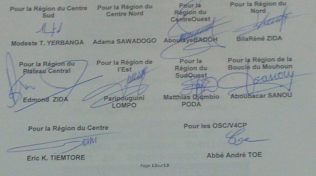 Pour la Région du Centre Sud
Pour la Région du Centre Nord
Pour la Région du CentreOuest
Pour la Région du Nord
Modeste T. YERBANGA
Adama SAWADOGO
BilaRéné ZIDA
Pour la Région du Plateau Central
Pour la Région de l'Est
Pour la Région du SudOuest
Pour la Région de la Boucle du Mouhoun
Edmond ZIDA
LOMPO
Matthias PODA
Aboubacar SANOU
Pour la Région du Centre
Pour les OSC/V4CP
Eric K. TIEMTORE
Abbé André TOE